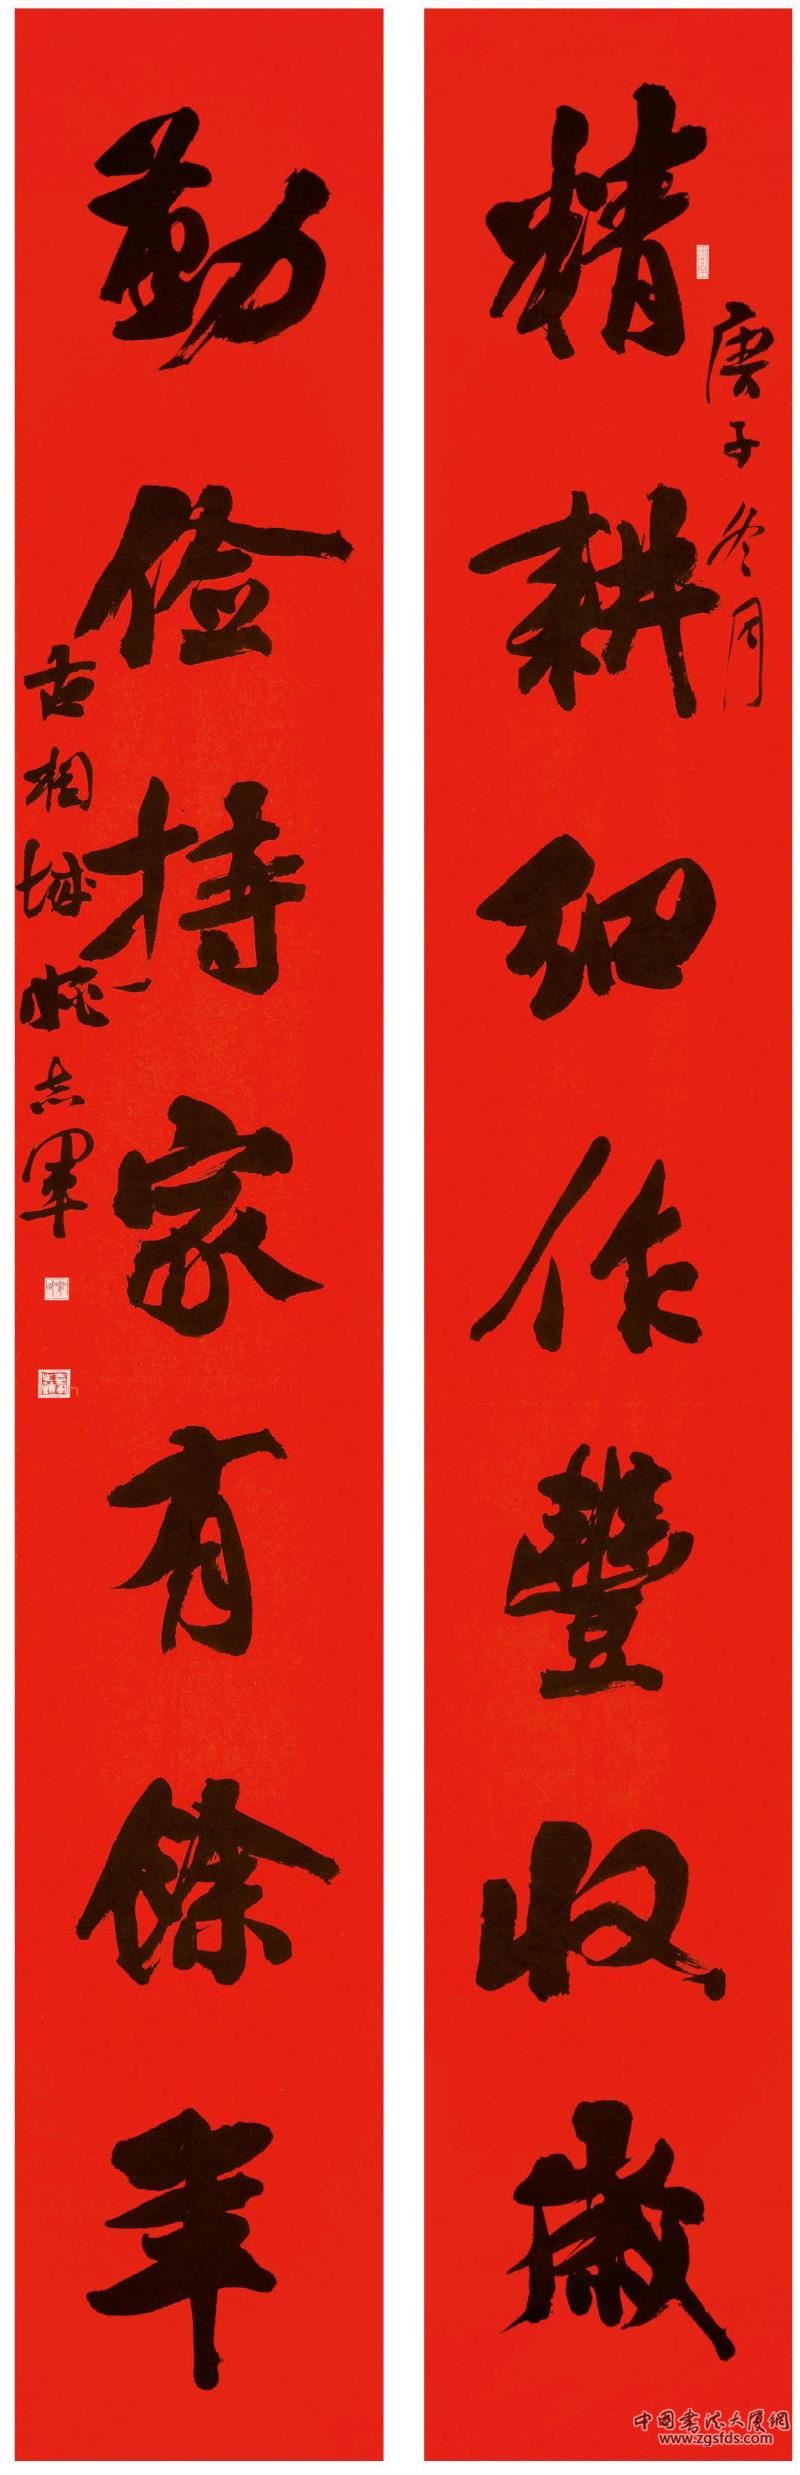 精耕細作豐收歲
庚子冬月
勤儉持家有餘年
古相城姚志軍
中國書法大廈網
www.zgsfds.com